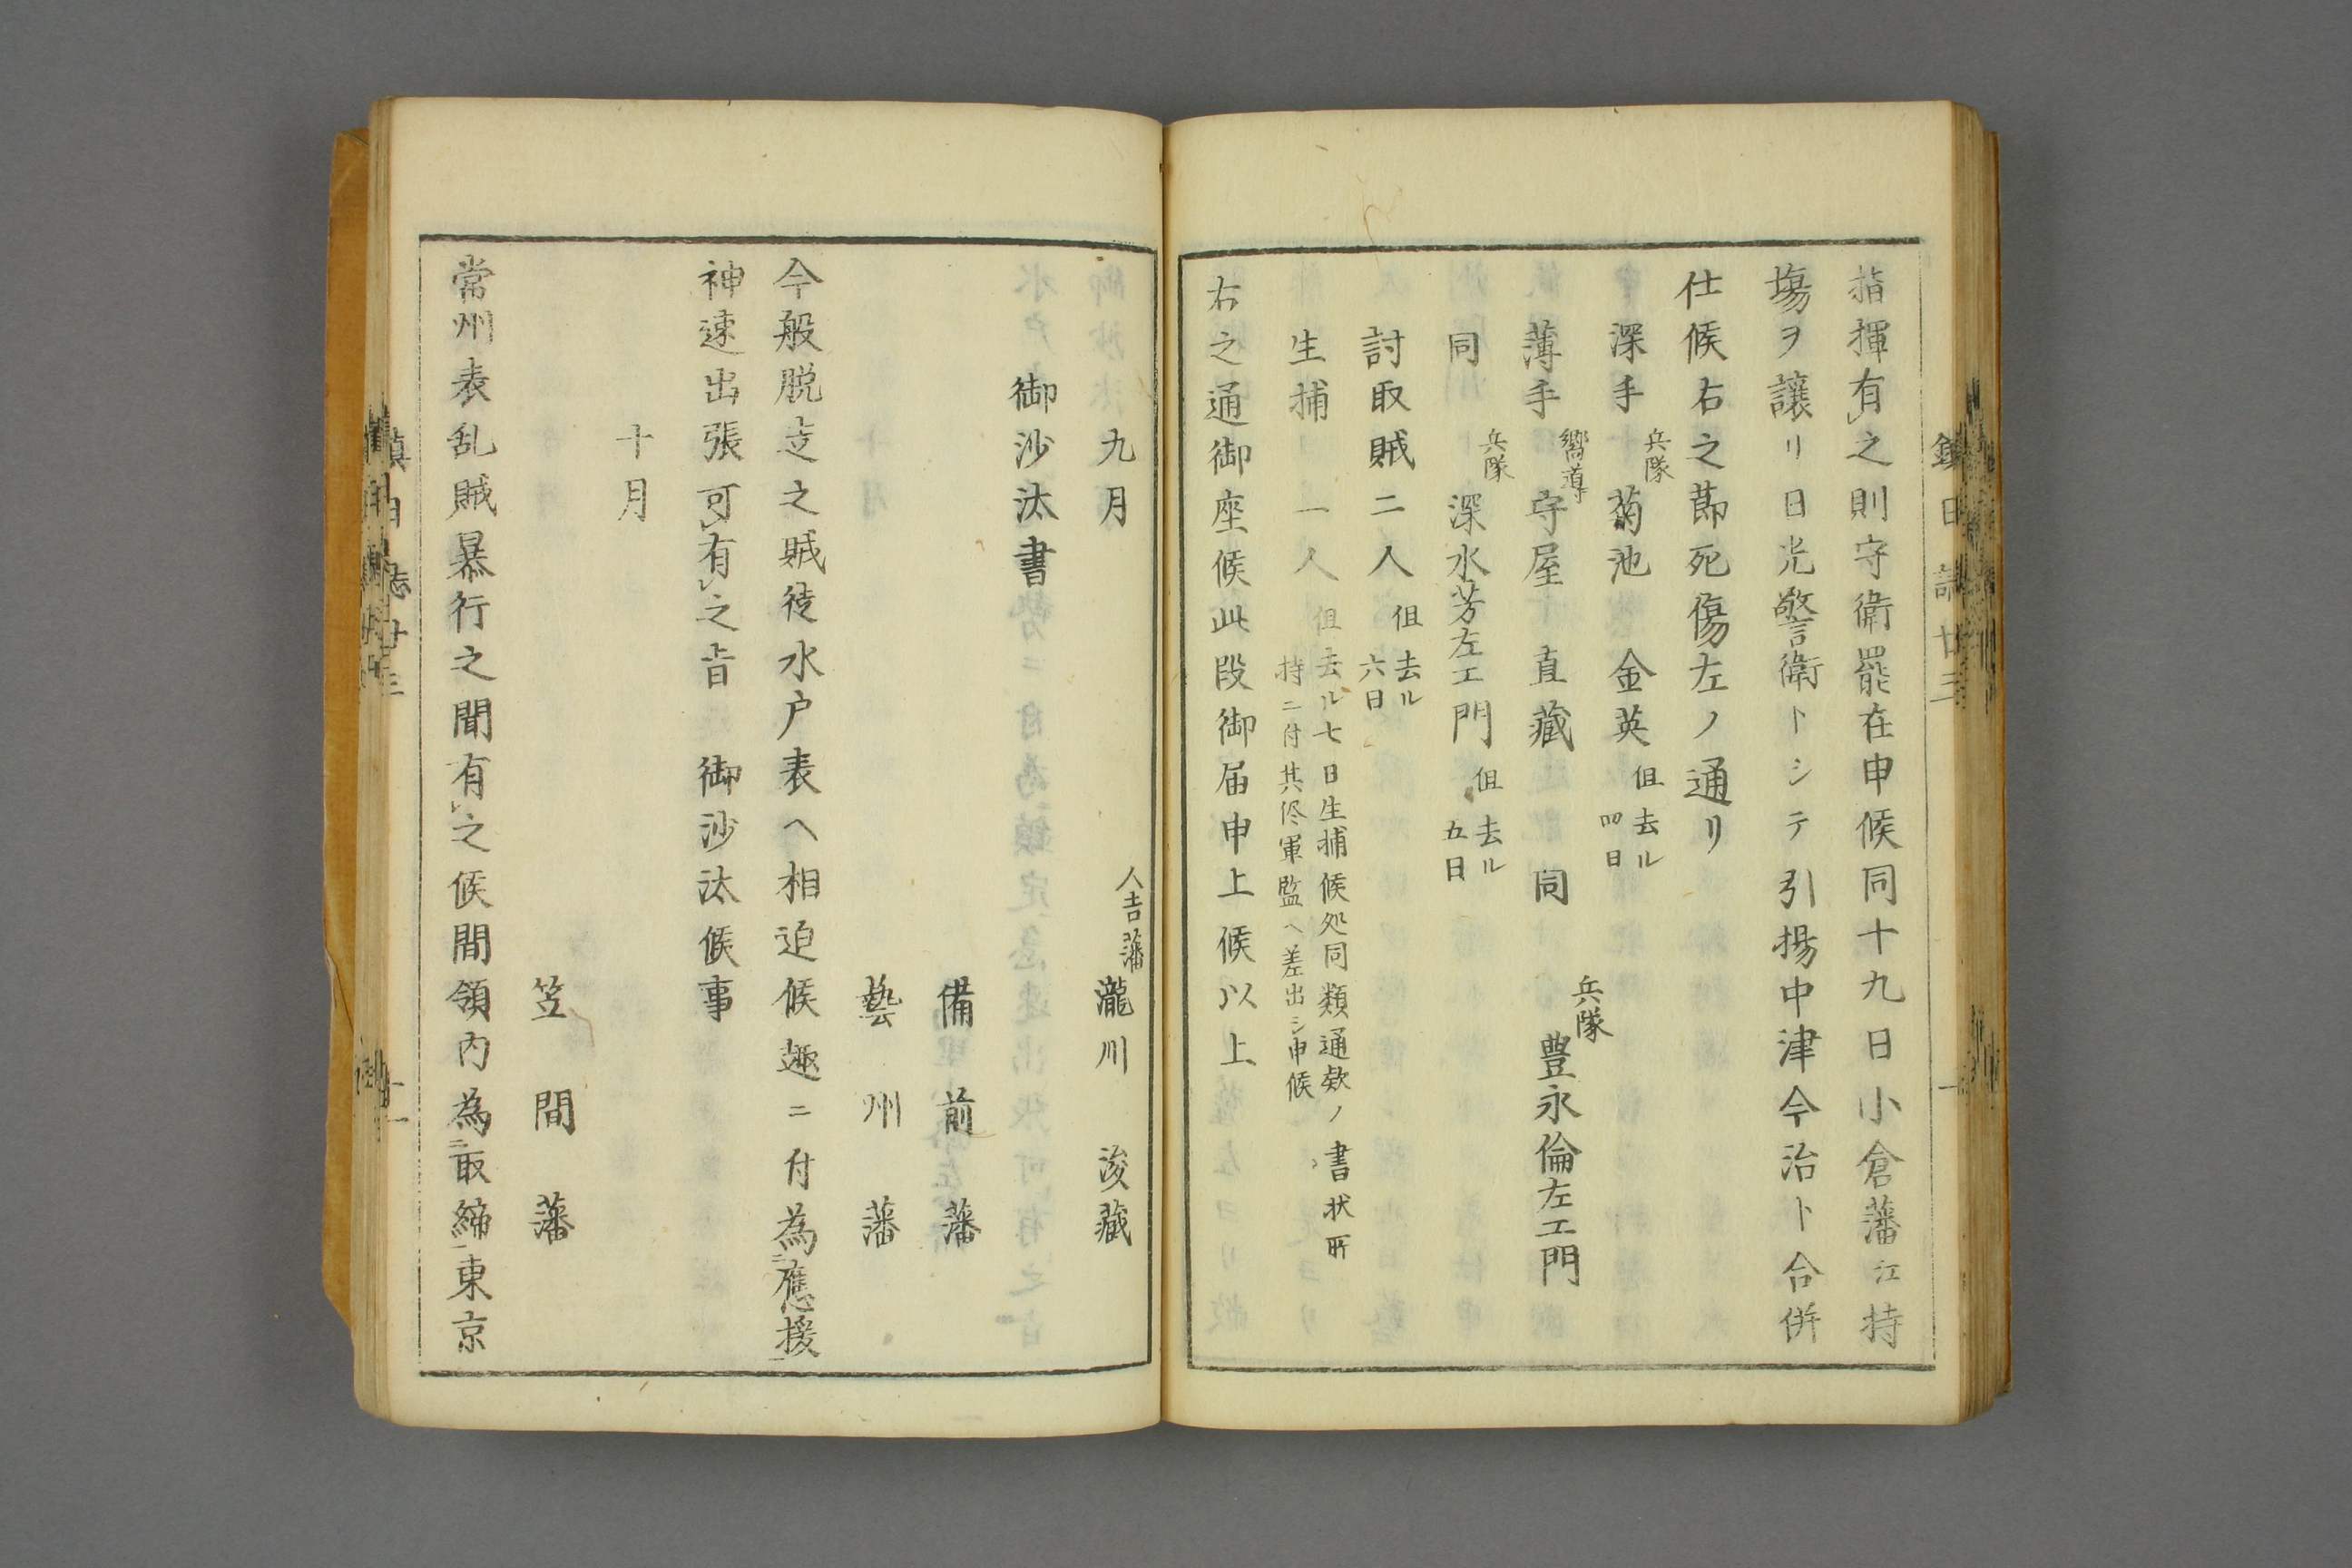 指揮有レ之則守衛罷在申候同十九日小倉藩江持
場ヲ讓リ日光警衛トシテ引揚中津今治ト合併
仕候右之節死傷左ノ通リ
深手 兵隊 菊池 金英 但去ル四日
薄手 嚮導 守屋 直藏 同 兵隊 豊永倫左エ門
同 兵隊 深水芳左エ門 但去ル五日
討取賊二人 但去ル六日
生捕 一人 但去ル七日生捕候処同類通欵ノ書状所
持ニ付其侭軍監ヘ差出シ申候
右之通御座候此段御届申上候以上
九月 人吉藩 瀧川 浚藏
御沙汰書
備前藩
藝州藩
今般脱走之賊徒水户表ヘ相迫候趣ニ付為二應援一
神速出張可レ有レ之旨 御沙汰候事
十月
笠間藩
常州表乱賊暴行之聞有レ之候間領内為二取締一東京
鎮日誌廿三